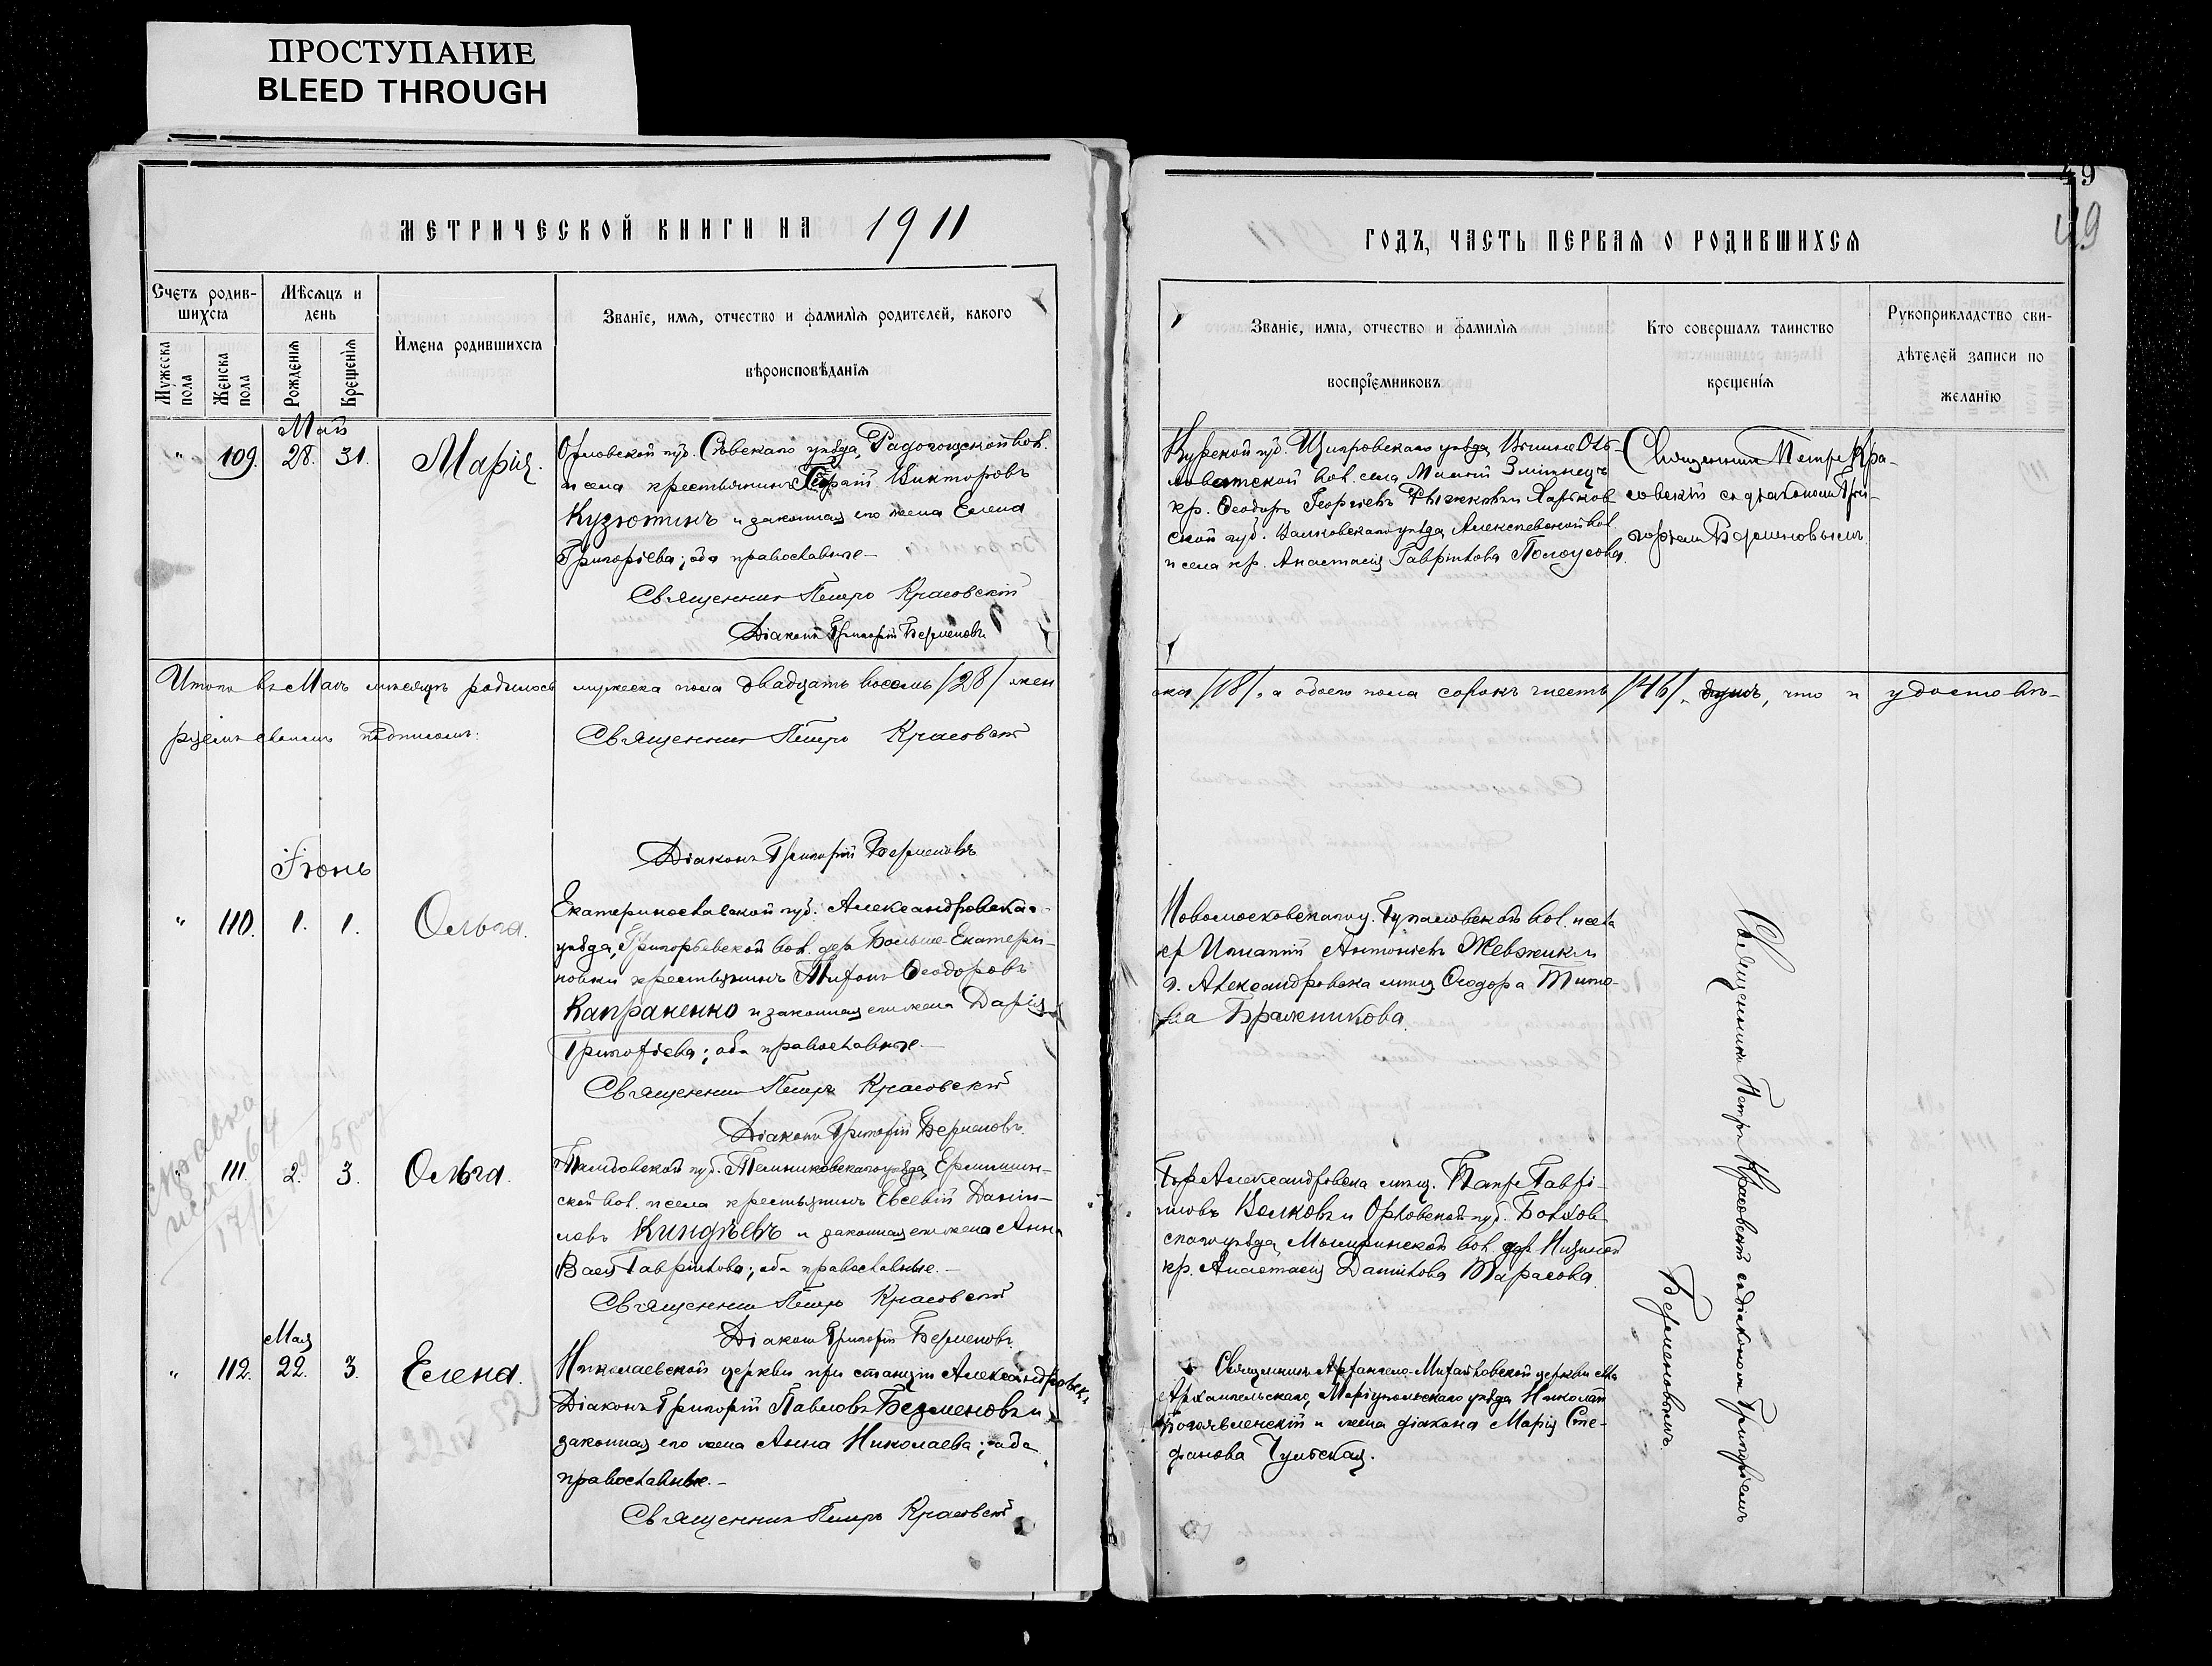 ПРОСТУПАНИЕ
BLEED THROUGH
49
49
МЕТРИЧЕСКОЙ КНИГИ НА 1911
ГОДЪ, ЧАСТЬ ПЕРВАЯ О РОДИВШИХСЯ
Счетъ родив-
шихся
Мужеска пола
Женска пола
Мѣсяцъ и
день
Рожденія
Крещенія
Имена родившихся
Званіе, имя, отчество и фамилія родителей, какого
вѣроисповѣданія
Званіе, имя, отчество и фамилія
воспріемниковъ
Кто совершалъ таинство
крещенія
Рукоприкладство сви-
дѣтелей записи по
желанію
Май
" 109. 28. 31. Марія.
Орловской губ. Сѣвскаго уѣзда, Радогощской вол.
и села крестьянинъ Викторовъ
Кузютинъ и законная его жена Елена
Григоріева; оба православные
Священникъ Петръ Красовскій
Діаконъ Григорій Безменовъ
Курской губ. Щигровскаго уѣзда,
вол. села
кр. Ѳеодоръ Георгіевъ Рыжковъ и Харьков-
ской губ. Валковскаго уѣзда, Алексѣевской вол.
и села кр. Анастасія Гавріилова
Священникъ Петръ Кра-
совскій съ діакономъ Гри-
горіемъ Безменовымъ
Итого въ Маѣ мѣсяцѣ родилось мужеска пола двадцать восемь /28/ жен
ска /18/, а обоего пола сорокъ шесть /46/ душъ, что и удостовѣ-
ряемъ своимъ подписомъ:
Священникъ Петръ Красовскій
Діаконъ Григорій Безменовъ
Іюнь
" 110. 1. 1. Ольга.
Екатеринославской губ. Александровскаго
уѣзда, Григорьевской вол. дер. Больше-Екатери-
новки крестьянинъ Ѳеодоровъ
Капраненко и законная его жена Дарія
Григоріева; оба православные
Священникъ Петръ Красовскій
Діаконъ Григорій Безменовъ
Новомосковскаго у. вол. и села
кр. Игнатій Антоніевъ Жевжикъ и
г. Александровска мѣщ. Ѳеодора
Бражникова.
справка
" 111. 2. 3. Ольга.
Тамбовской губ. Темниковскаго уѣзда,
ской вол. и села крестьянинъ Евсевій Даніи-
ловъ Киндѣевъ и законная его жена Анна
Гавріилова; оба православные.
Священникъ Петръ Красовскій
Діаконъ Григорій Безменовъ
Александровска мѣщ. Гаврі-
иловъ Волковъ и Орловской губ. Болхов-
скаго уѣзда, вол. дер.
кр. Анастасія Даніилова Тарасова.
Мая
" 112. 22. 3. Елена.
Николаевской церкви при станціи Александровскъ
Діаконъ Григорій Павловъ Безменовъ и
законная его жена Анна Николаева; оба
православные.
Священникъ Петръ Красовскій
Священникъ Архангело-Михайловской церкви села
Архангельскаго, Маріупольскаго уѣзда Николай
Богоявленскій и жена діакона Марія Сте-
фанова
Священникъ Петръ Красовскій съ діакономъ Григоріемъ
Безменовымъ.